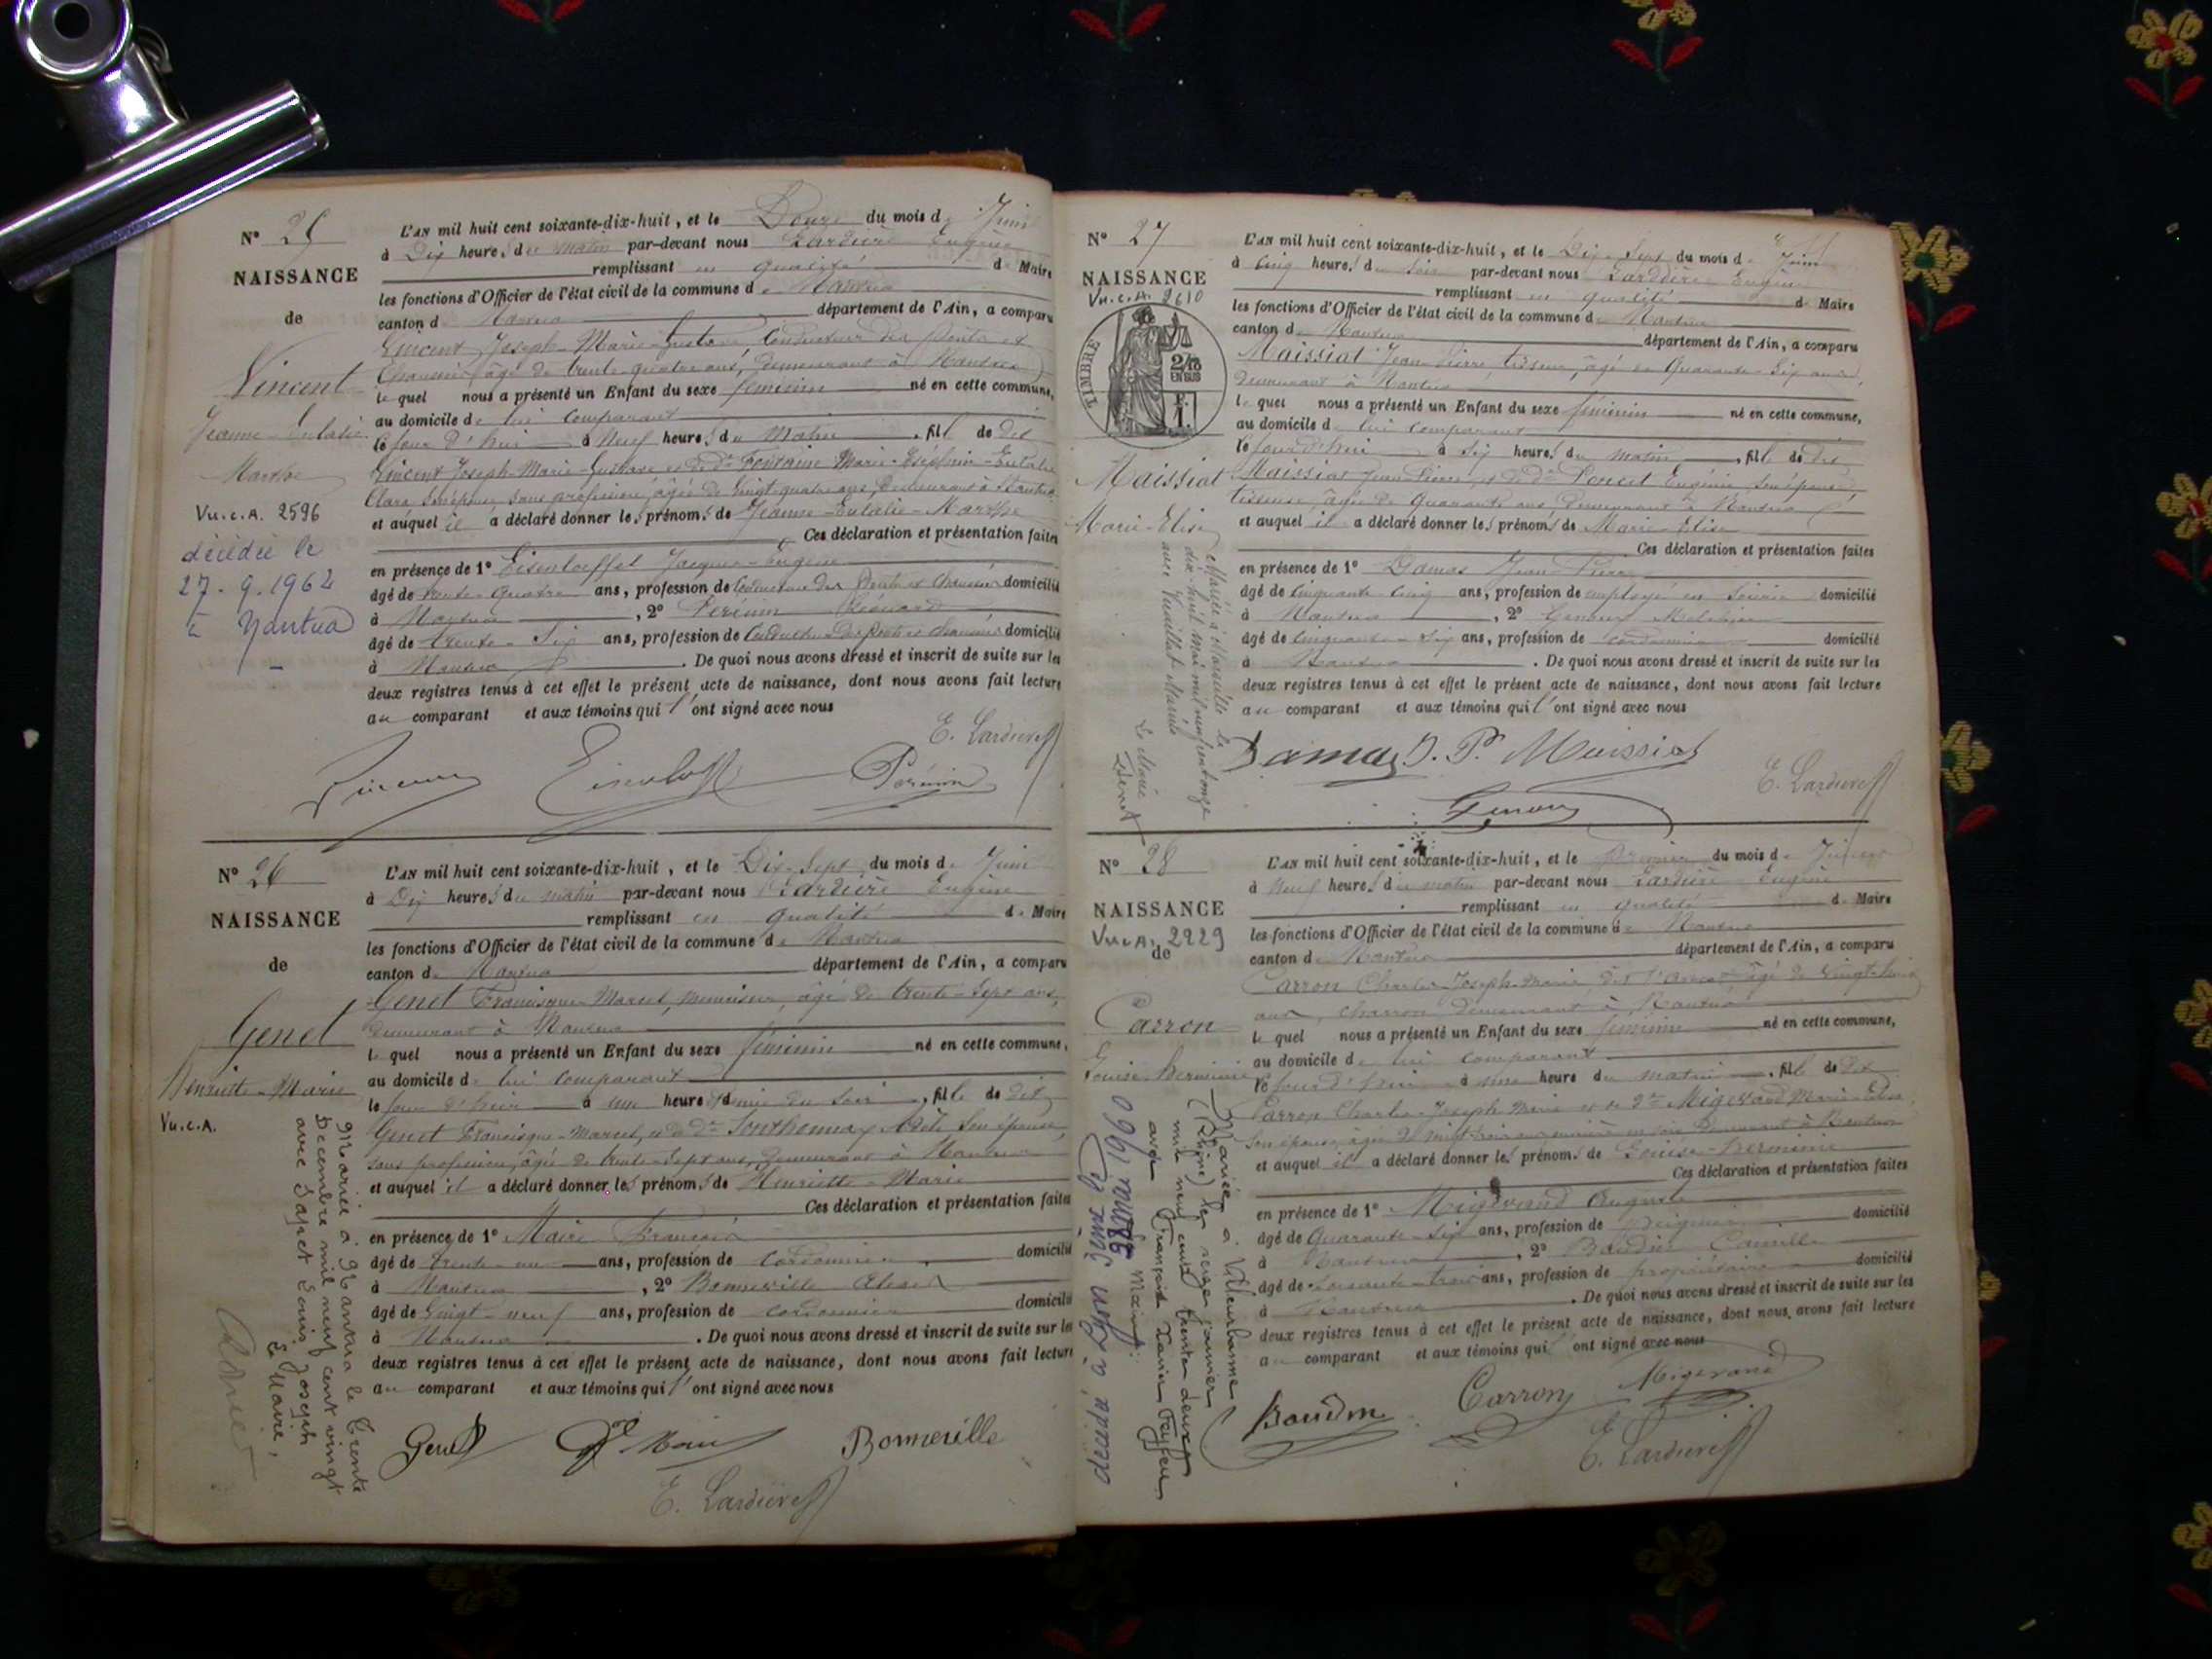 N° 25
NAISSANCE
de
Vincent
Jeanne-Eulalie
Marthe
Vu.c.A. 2596
décédée le
27.9.1962
à Nantua
L'AN mil huit cent soixante-dix-huit, et le Douze du mois de Juin
à Dix heures du matin par-devant nous Lardière Eugène
remplissant en qualité de Maire
les fonctions d'Officier de l'état civil de la commune de Nantua
canton de Nantua département de l'Ain, a comparu
Vincent Joseph-Marie-Gustave, Conducteur des Ponts et
Chaussées âgé de trente-quatre ans, demeurant à Nantua
lequel nous a présenté un Enfant du sexe féminin né en cette commune,
au domicile de lui comparant
le jour d'hui à Neuf heures du Matin, fille de dit
Vincent Joseph-Marie-Gustave et de de Fontaine Marie-Joséphine-Eulalie
Clara son épouse, sans profession, âgée de Vingt-quatre ans, demeurant à Nantua
et auquel il a déclaré donner les prénoms de Jeanne-Eulalie-Marthe
Ces déclaration et présentation faites
en présence de 1° Eisenloeffel Jacques-Eugène
âgé de trente-quatre ans, profession de Conducteur des Ponts et Chaussées domicilié
à Nantua, 2° Perénin
âgé de trente-Six ans, profession de Conducteur des Ponts et Chaussées domicilié
à Nantua. De quoi nous avons dressé et inscrit de suite sur les
deux registres tenus à cet effet le présent acte de naissance, dont nous avons fait lecture
au comparant et aux témoins qui l'ont signé avec nous
E. Lardière
Vincent Perénin
N° 26
NAISSANCE
de
Genet
Henriette-Marie
Vu.c.A.
Mariée à Nantua le trente
Décembre mil neuf cent vingt
avec Sapet Louis Joseph
Le Maire,
L'AN mil huit cent soixante-dix-huit, et le Dix-Sept du mois de Juin
à Dix heures du matin par-devant nous Lardière Eugène
remplissant en qualité de Maire
les fonctions d'Officier de l'état civil de la commune de Nantua
canton de Nantua département de l'Ain, a comparu
Genet Francisque-Marcel, menuisier, âgé de trente-Sept ans,
demeurant à Nantua
lequel nous a présenté un Enfant du sexe féminin né en cette commune,
au domicile de lui comparant
le jour d'hier à une heure demie du Soir, fille de dit
Genet Francisque-Marcel, et de de Sonthonnax Adèle Son épouse,
sans profession, âgée de trente-Sept ans, demeurant à Nantua
et auquel il a déclaré donner les prénoms de Henriette-Marie
Ces déclaration et présentation faites
en présence de 1° Maire François
âgé de trente-un ans, profession de cordonnier domicilié
à Nantua, 2° Bonneville
âgé de Vingt-neuf ans, profession de cordonnier domicilié
à Nantua. De quoi nous avons dressé et inscrit de suite sur les
deux registres tenus à cet effet le présent acte de naissance, dont nous avons fait lecture
au comparant et aux témoins qui l'ont signé avec nous
Genet Maire Bonneville
E. Lardière
N° 27
NAISSANCE
Vu.c.A. 2610
TIMBRE
2/10
EN SUS
F.
1.
Maissiat
Marie-Elise
Mariée à Marseille le
dix-huit mai mil neuf cent onze
avec Vuaillat Marius
Le Maire
L'AN mil huit cent soixante-dix-huit, et le Dix-Sept du mois de Juin
à Cinq heures du Soir par-devant nous Lardière Eugène
remplissant en qualité de Maire
les fonctions d'Officier de l'état civil de la commune de Nantua
canton de Nantua département de l'Ain, a comparu
Maissiat Jean-Pierre, tisseur, âgé de Quarante-Six ans,
demeurant à Nantua
lequel nous a présenté un Enfant du sexe féminin né en cette commune,
au domicile de lui comparant
le jour d'hui à Six heures du matin, fille de dit
Maissiat Jean-Pierre, et de de Poncet Eugénie, son épouse,
tisseuse, âgée de Quarante ans, demeurant à Nantua
et auquel il a déclaré donner les prénoms de Marie-Elise
Ces déclaration et présentation faites
en présence de 1° Damas Jean-Pierre
âgé de Cinquante-Cinq ans, profession de employé en Soierie domicilié
à Nantua, 2° Genoux
âgé de Cinquante-Six ans, profession de cordonnier domicilié
à Nantua. De quoi nous avons dressé et inscrit de suite sur les
deux registres tenus à cet effet le présent acte de naissance, dont nous avons fait lecture
au comparant et aux témoins qui l'ont signé avec nous
Damas J. P. Maissiat
E. Lardière
Genoux
N° 28
NAISSANCE
Vu.c.A. 2229
de
Carron
Louise-Herminie
Mariée à Villeurbanne
(Rhône) le seize janvier
mil neuf cent trente deux
avec François Xavier Fayfeu
décédée à Lyon 3ème le
28 mai 1960
L'AN mil huit cent soixante-dix-huit, et le Premier du mois de Juillet
à Neuf heures du matin par-devant nous Lardière Eugène
remplissant en qualité de Maire
les fonctions d'Officier de l'état civil de la commune de Nantua
canton de Nantua département de l'Ain, a comparu
Carron Charles-Joseph-Marie, âgé de Vingt-huit
ans, charron demeurant à Nantua
lequel nous a présenté un Enfant du sexe féminin né en cette commune,
au domicile de lui comparant
le jour d'hui à une heure du matin, fille de dit
Carron Charles-Joseph-Marie et de de Migévand Marie-Elise,
Son épouse, âgée de Vingt-trois ans ouvrière en soie demeurant à Nantua
et auquel il a déclaré donner les prénoms de Louise-Herminie
Ces déclaration et présentation faites
en présence de 1° Migévand Auguste
âgé de Quarante-Six ans, profession de Peignier domicilié
à Nantua, 2° Baudin Camille
âgé de Soixante-trois ans, profession de propriétaire domicilié
à Nantua. De quoi nous avons dressé et inscrit de suite sur les
deux registres tenus à cet effet le présent acte de naissance, dont nous avons fait lecture
au comparant et aux témoins qui l'ont signé avec nous
Baudin Carron Migévand
E. Lardière